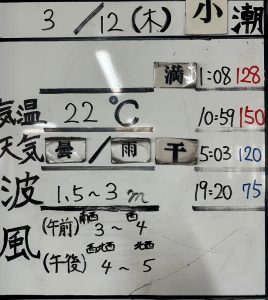 3/12(木) 小潮
満 1:08 128
10:59 150
気温 22℃
天気 曇/雨
干 5:03 120
19:20 75
波 1.5~3m
風
(午前) 南西 3~西 4
(午後) 西北西 4~北西 5